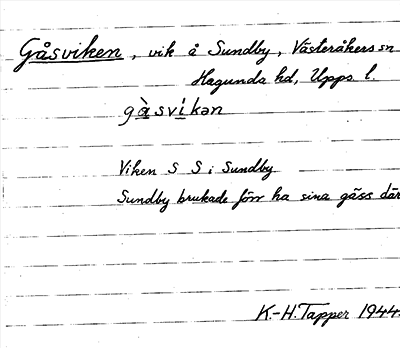 Gåsviken, vik å Sundby, Västeråkers sn
Hagunda hd, Upps. l.
gå̀svíkən
Viken S S i Sundby
Sundby brukade förr ha sina gäss där
K.-H. Tapper 1944.